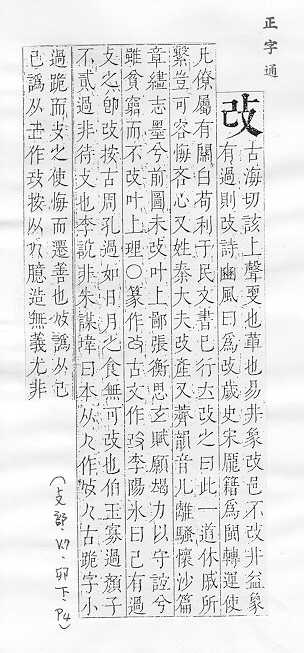 正字通
改
古海切該上聲更也革也易井彖改邑不改井益象
有過則改詩豳風曰為改歲史宋龐籍為閩轉運使
凡僚屬有關白苟利于民文書已行亦改之曰此一道休戚所
繫豈可容悔吝心又姓秦大夫改產又薺韻音几離騷懷沙篇
章繢志墨兮前圖未改叶上鄙張衡思玄賦願竭力以守誼兮
雖貧窮而不改叶上理○篆作攺古文作李陽冰曰己有過
攴之卽改按古周孔過如日月之食無可改也伯玉寡過顏子
不貳過非待攴也李說非朱謀㙔曰本从作古跪字小
過跪而攴之使悔而遷善也譌从己
已譌从作按以臆造無義尤非
(支部.V.7.卯下.P4)